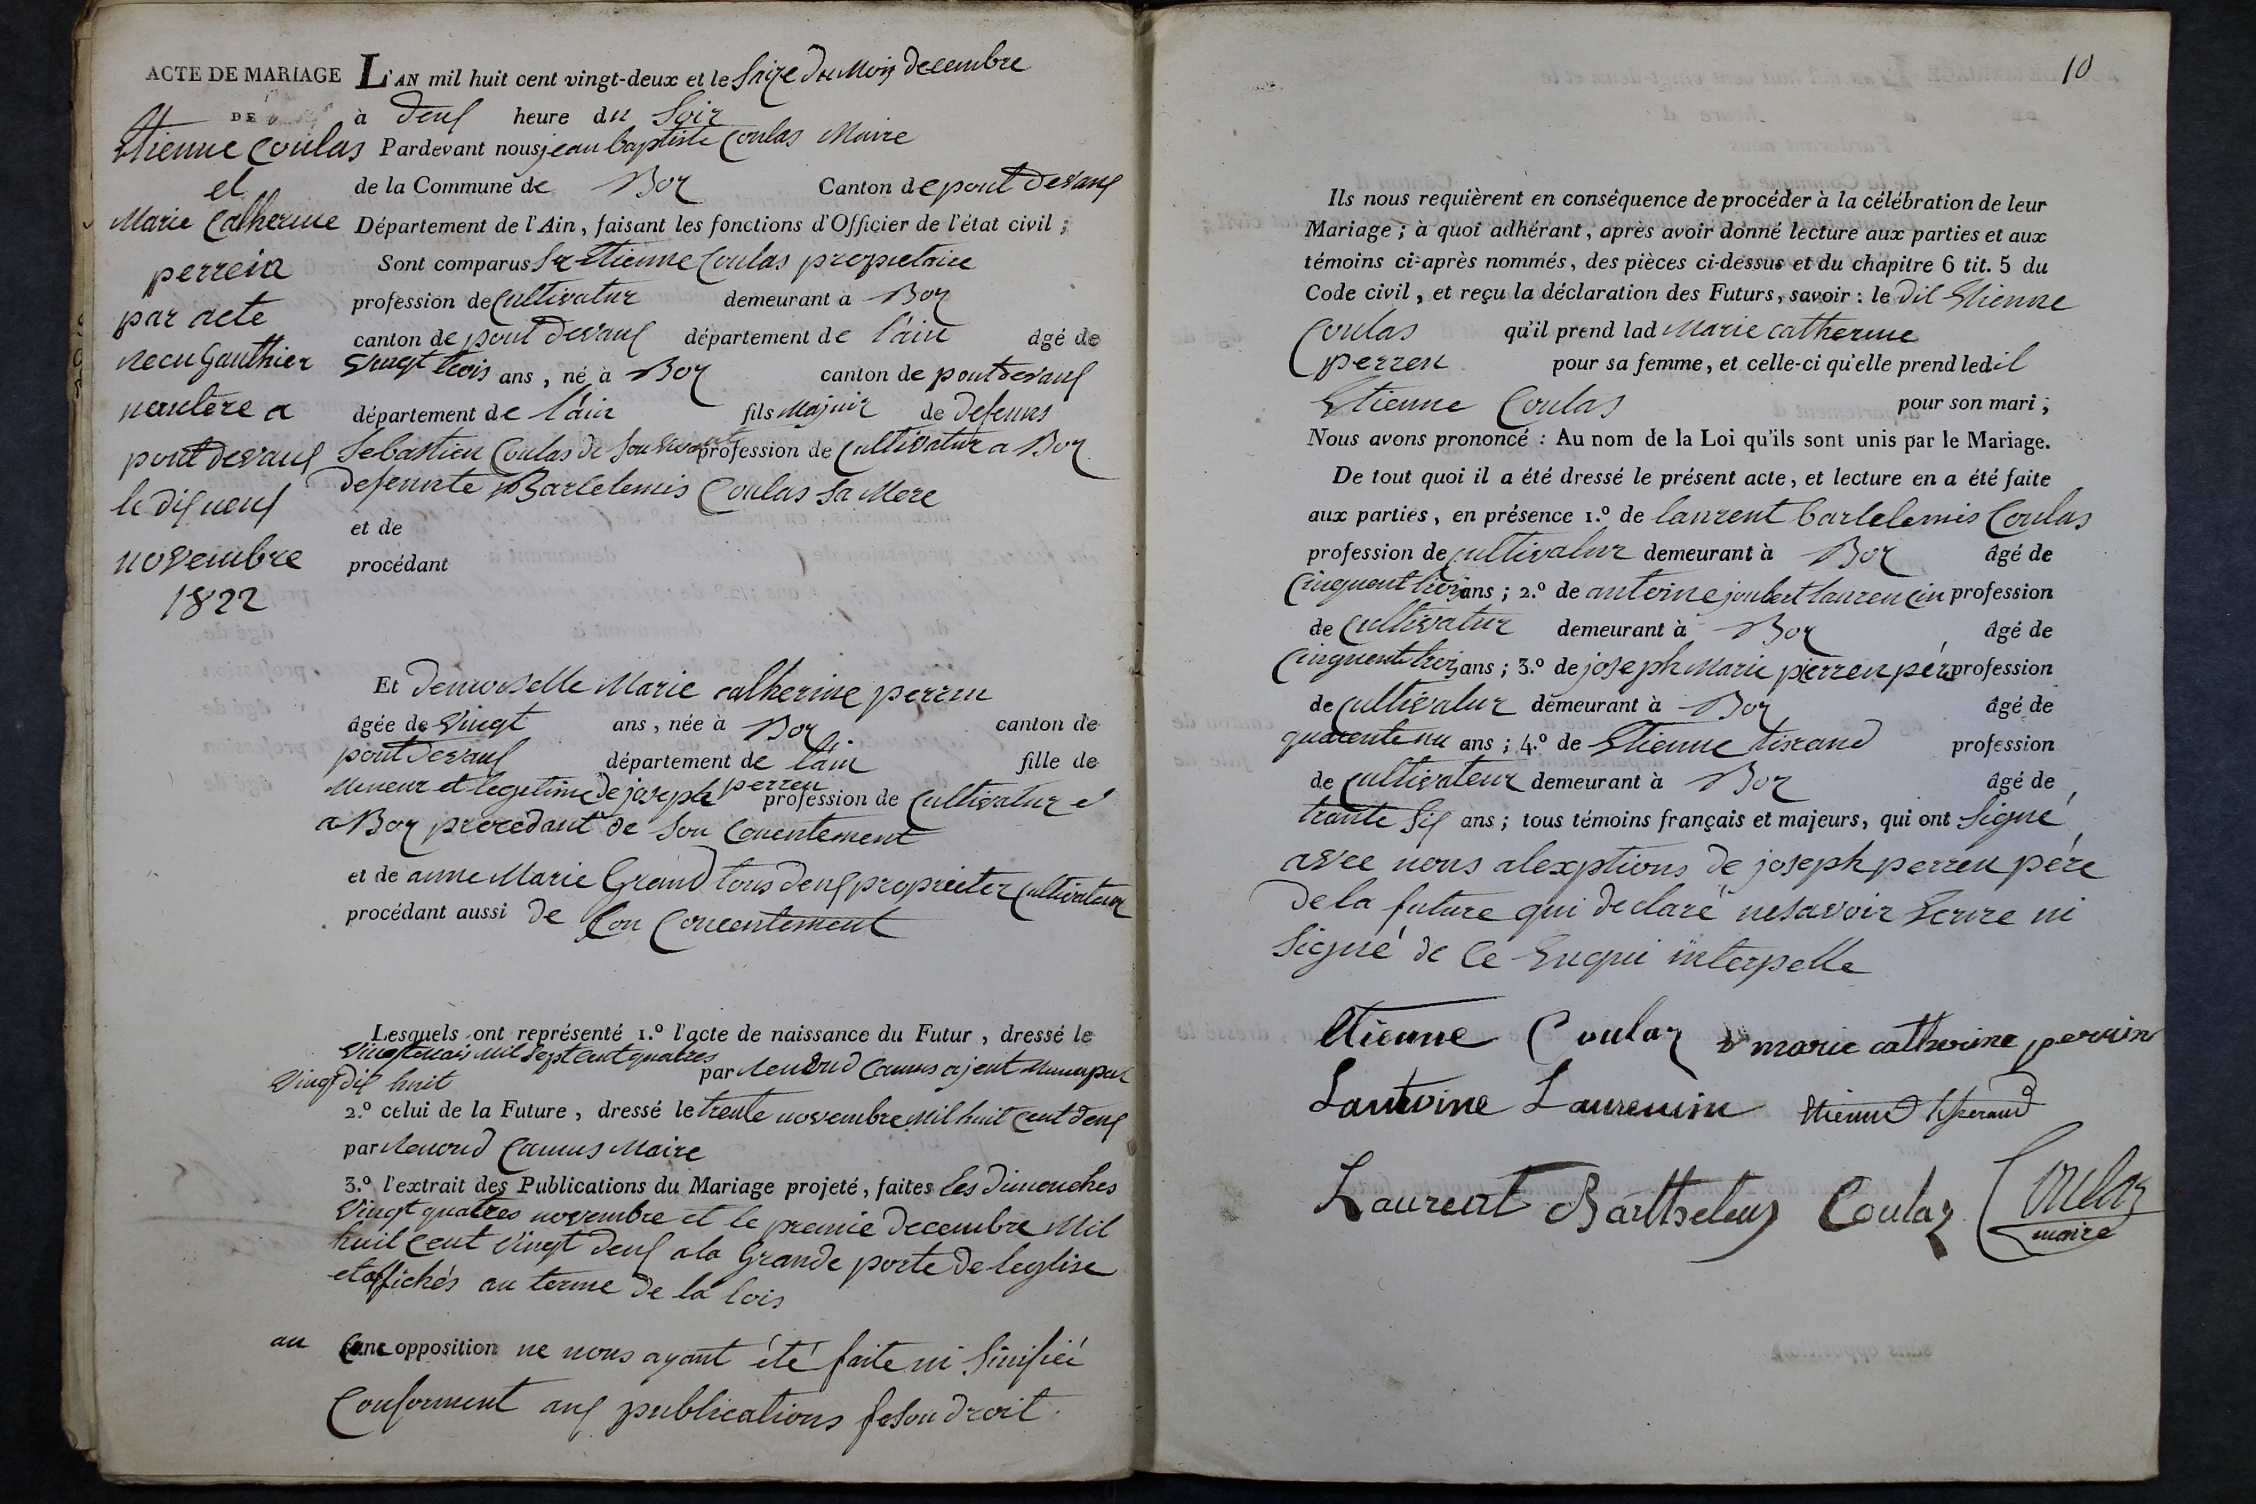 ACTE DE MARIAGE
DE
Etienne Coulas
et
Marie Catherine
perrein
par acte
recu Gauthier
nautere a
pont devaux
le dix neuf
novembre
1822
L'AN mil huit cent vingt-deux et le Saize du Mois decembre
à deux heure du Soir
Pardevant nous jean baptiste Coulas Maire
de la Commune de Boz Canton de pont devaux
Département de l'Ain, faisant les fonctions d'Officier de l'état civil ;
Sont comparus Sr Etienne Coulas proprietaire
profession de Cultivatur demeurant à Boz
canton de pont devaux département de l'ain âgé de
Vingt trois ans, né à Boz canton de pont devaux
département de l'ain fils Majuir de defeuns
Sebastien Coulas de Son vivant profession de Cultivatur a Boz
defeunte Bartelemis Coulas Sa Mere
et de
procédant
Et demoiselle Marie catherine perren
âgée de Vingt ans, née à Boz canton de
pont devaux département de l'ain fille de
Mineur et legetime de joseph perren profession de Cultivatur é
a Boz procedant de Son Conentement
et de anne Marie Grand tous deux proprieter Cultivateur
procédant aussi de Son Concentement
Lesquels ont représenté 1.º l'acte de naissance du Futur, dressé le
Vingt Mais Mil Sept Cent quatres
Vingt dix huit par Renoud Camus ajent Municpal
2.º celui de la Future, dressé le trente novembre Mil huit Cent deux
par Renoud Camus Maire
3.º l'extrait des Publications du Mariage projeté, faites les dimonches
Vingt quatres novembre et le premie decembre Mil
huit Cent Vingt deux a la Grande porte de leglise
et affichés au terme de la lois
au cune opposition ne nous ayant été faite ni Sinifiéé
Conforment aux publications feson droit.
10
Ils nous requièrent en conséquence de procéder à la célébration de leur
Mariage ; à quoi adhérant, après avoir donné lecture aux parties et aux
témoins ci-après nommés, des pièces ci-dessus et du chapitre 6 tit. 5 du
Code civil, et reçu la déclaration des Futurs, savoir : le dit Etienne
Coulas qu'il prend lad Marie catherine
perren pour sa femme, et celle-ci qu'elle prend ledit
Etienne Coulas pour son mari ;
Nous avons prononcé : Au nom de la Loi qu'ils sont unis par le Mariage.
De tout quoi il a été dressé le présent acte, et lecture en a été faite
aux parties, en présence 1.º de laurent bartelemis Coulas
profession de cultivatur demeurant à Boz âgé de
Cinquent trois ans ; 2.º de antoine joubert laurencin profession
de Cultivatur demeurant à Boz âgé de
Cinquente trois ans ; 3.º de joseph Marie pierren pére profession
de Cultivatur demeurant à Boz âgé de
quarente nu ans ; 4.º de Etienne tisrand profession
de Cultivateur demeurant à Boz âgé de
trante Six ans ; tous témoins français et majeurs, qui ont Signé
avee nous alexptions de joseph perren pére
de la future qui declare nesavoir Ecrire ni
Signé de Ce Enqui interpelle
etienne Coulaz marie catherine perrin
Lantoine Laurenein etienne tisseraud
Laurent Barthelemy Coulaz Coulaz
maire